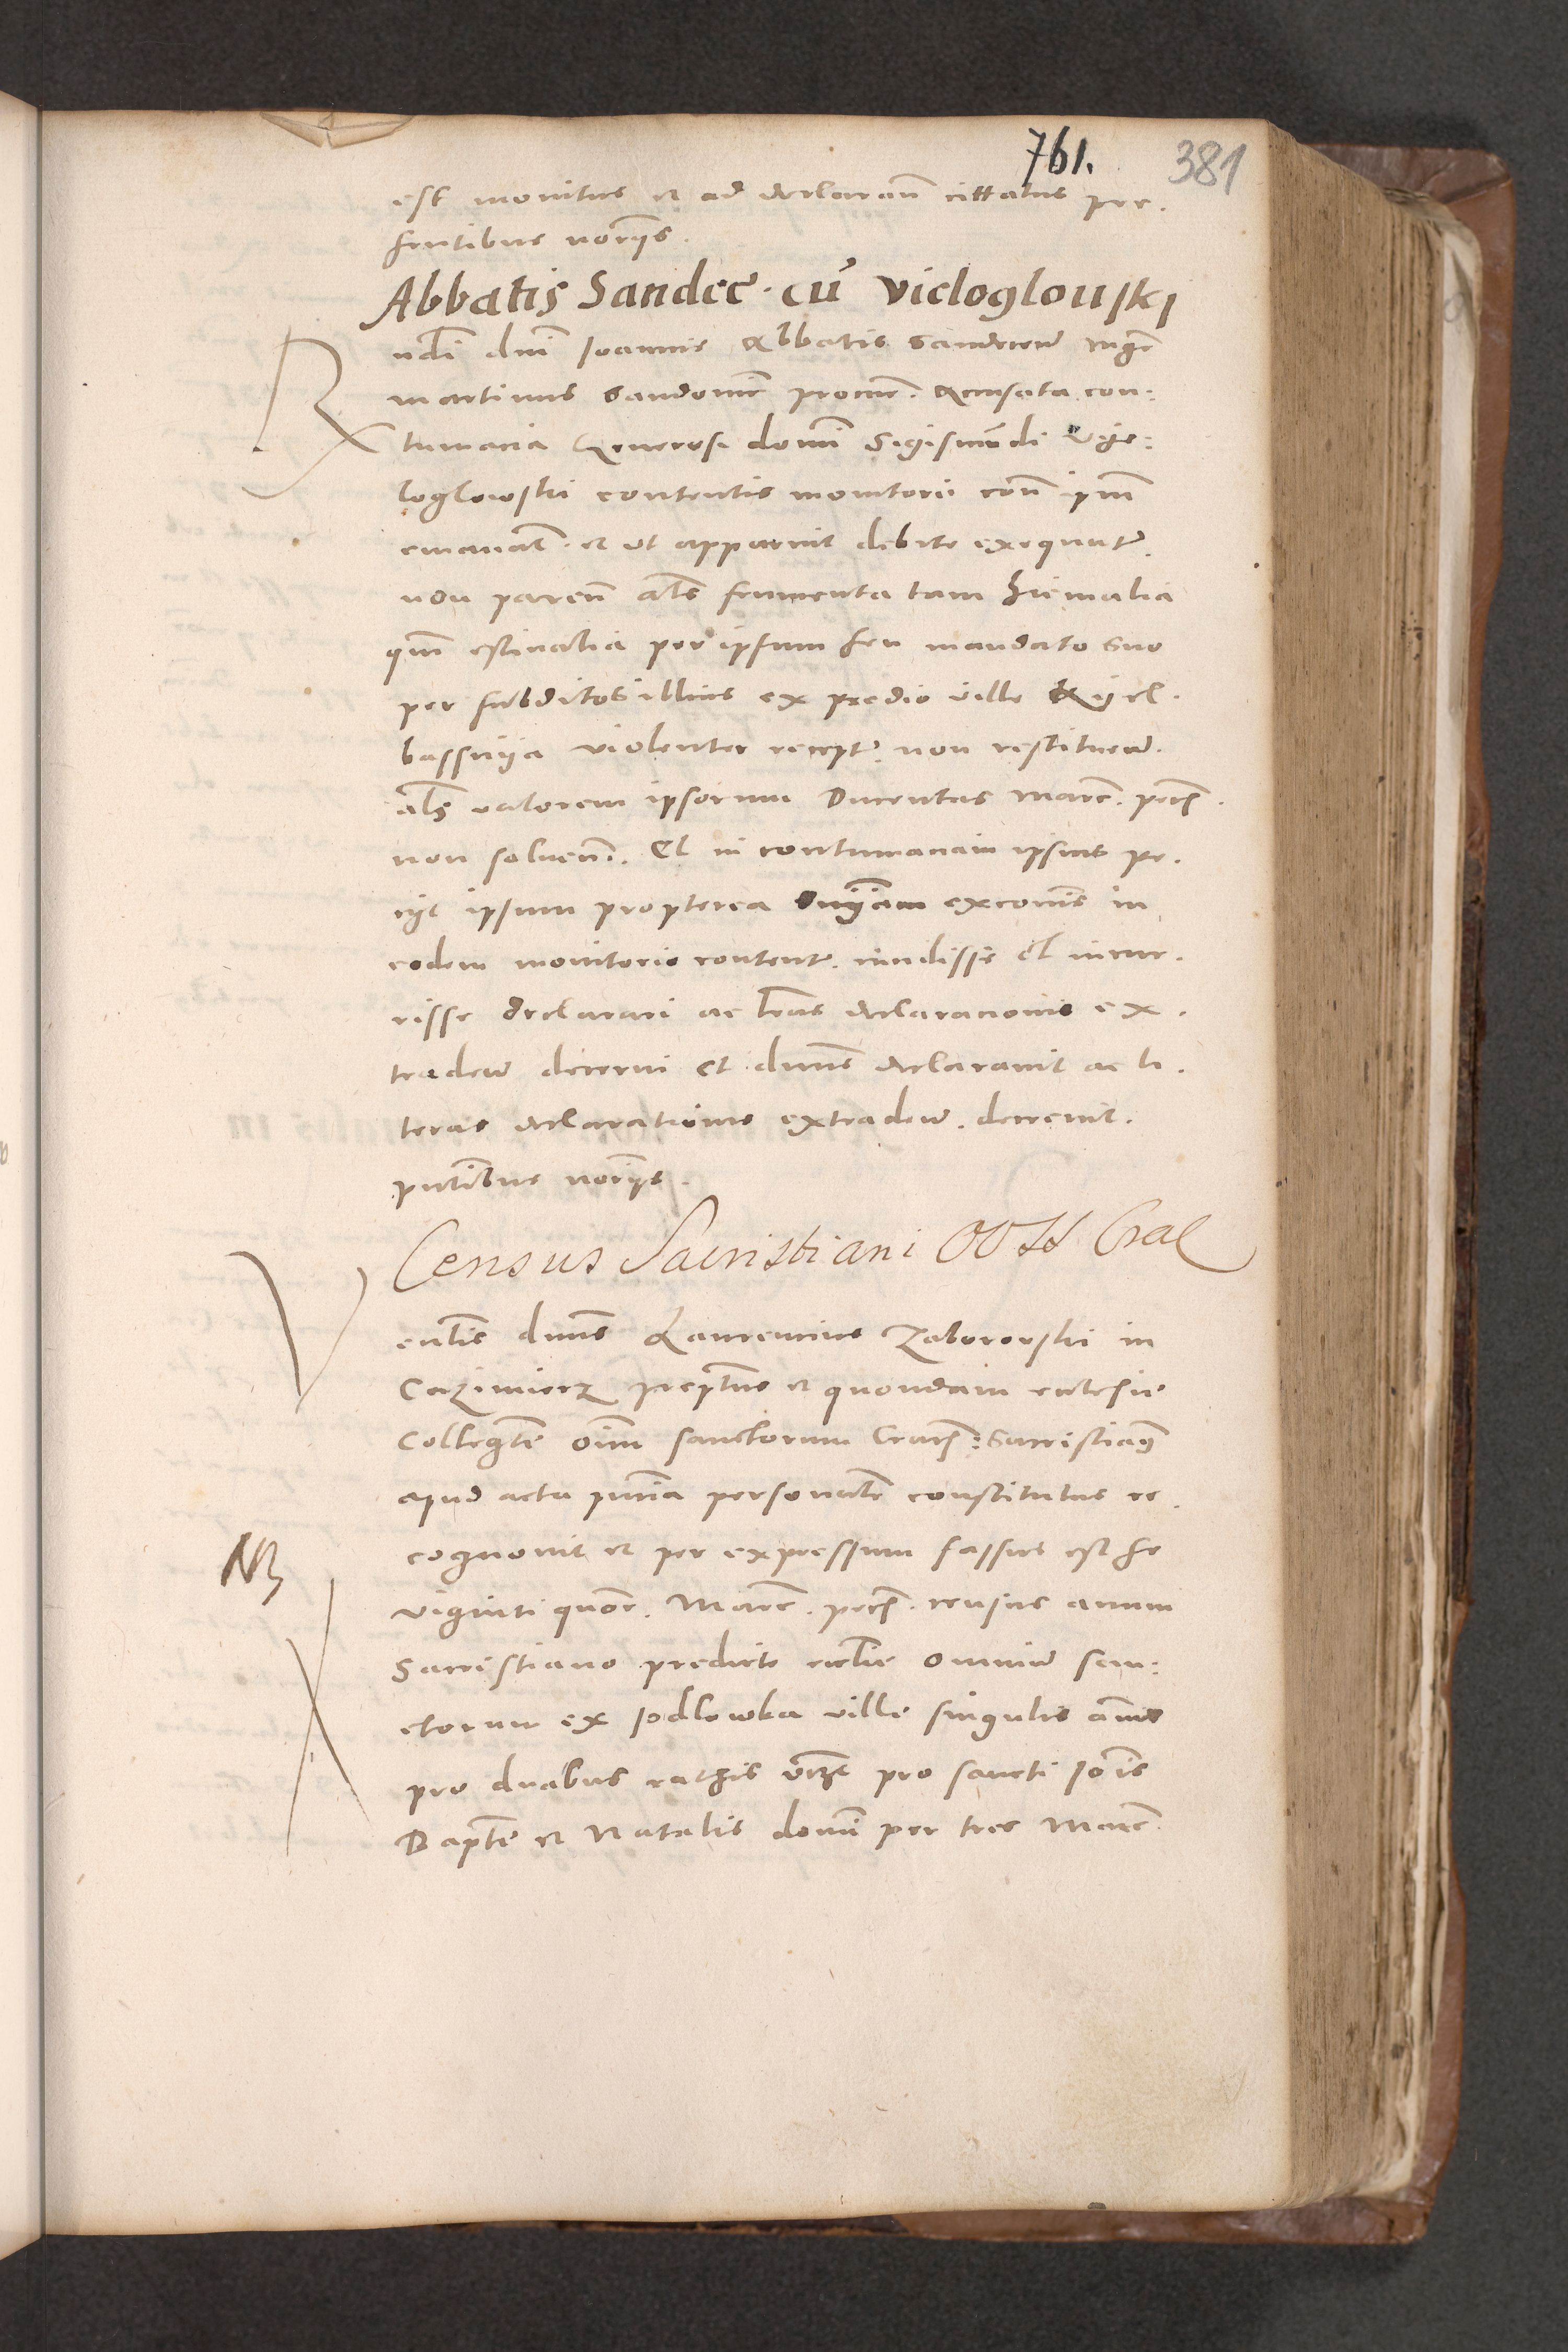 761. 381
est monitus et ad declaran̄ cittatus pre.
sentibus norȳs.
Abbatis Sandec̄. cū vieloglouski
Rndi dnī Ioannis Abbatis Sandecen̄ mgr̄
martinus Sandomir̄ procur̄. Accusata con:
tumacia Generosi domī Sigismūdi vye:
loglowski contentis monitorii con̄ ipm̄
emanat̄. et ut apparuit debite exequut̄.
non paren̄ als̄ frumenta tam hiemalia
qm̄ estiualia per ipsum seu mandato suo
per subditos illius ex predio ville Kyel.
bassnÿa violenter recept̄. non restituen̄.
als̄ valorem ipsorum Ducentas marc̄. pec̄.
non soluen̄. Et in contumaciam ipsius pe.
cÿt ipsum propterea snÿam excoīs in
eodem monitorio content̄. incidisse et incur.
risse declarari ac lr̄as declaracionis ex.
traden̄ decerni Et dnūs declarauit ac li.
teras declarationis extraden̄. decreuit.
pn̄tibus norȳs.
Census Sacristiani OO SS Crac
Venlis̄ dnūs Laurencius Zaborowski in
Cazimierz prep̄tus et quondam ecclesie
Collegte̅ oīm sanctorum Crac̄: Sacristian9
apud acta pn̄tia personalr̄ constitutus re.
NB
cognouit et per expressum fassus est se
viginti quor̄. Marc̄. pec̄. census annui
Sacristiano predicte eccl̄ie omniū san:
ctorum ex Iodlowka ville singulis annis
pro duabus rathis vīz pro sancti Ioīs
Baptē et Natalis domī per tres Marc̄.